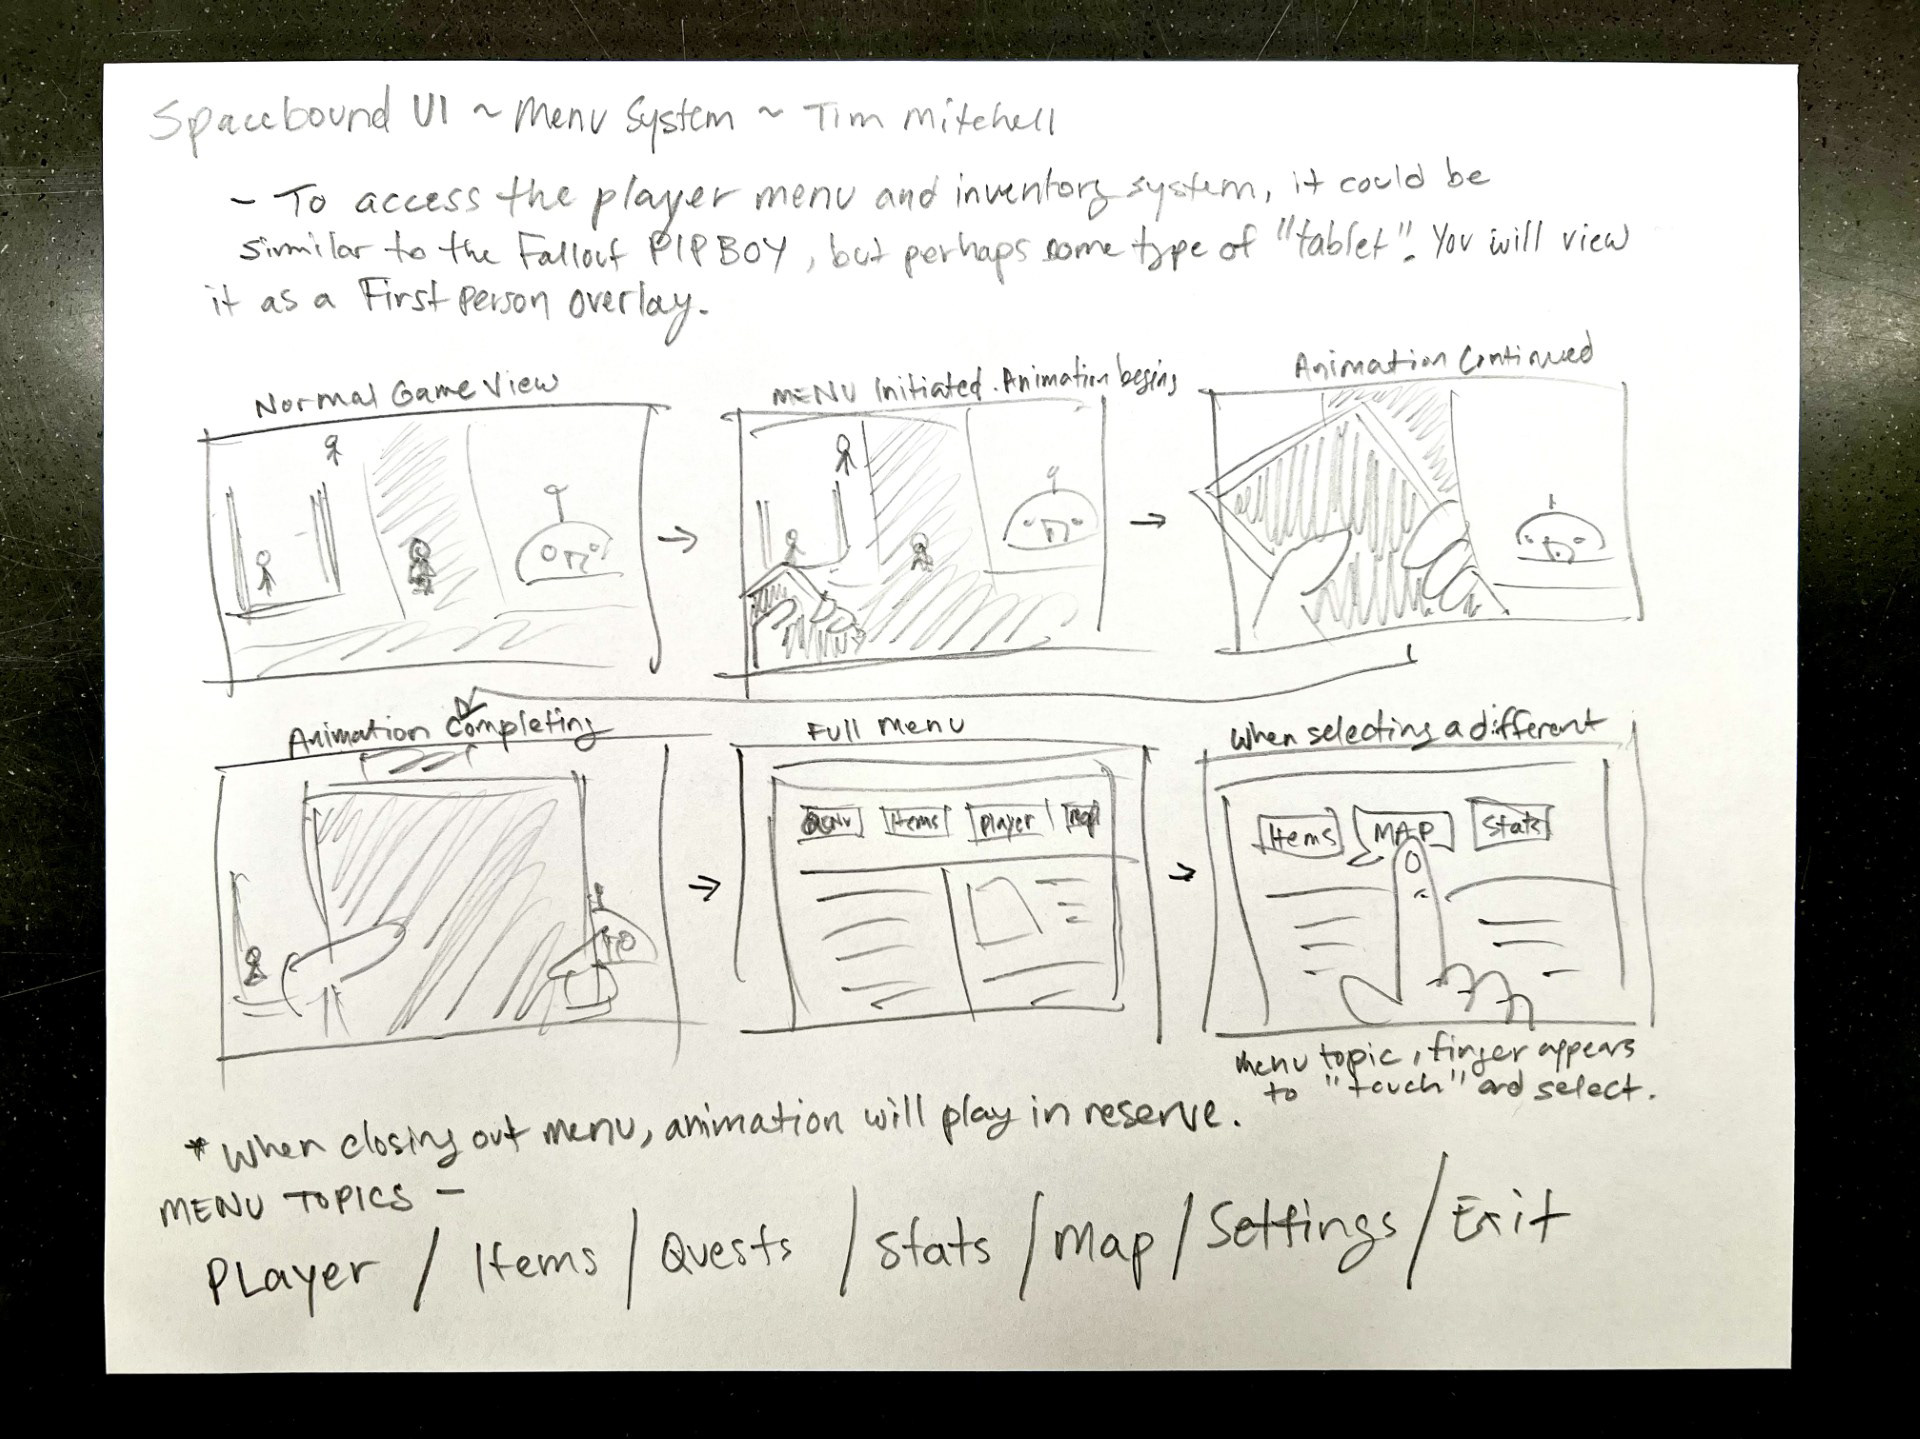 Spacebound UI ~ Menu System ~ Tim Mitchell
- To access the player menu and inventory system, it could be
similar to the Fallout PIPBOY, but perhaps some type of "tablet". You will view
it as a First person overlay.
Normal Game View
MENU Initiated. Animation begins
Animation Continued
Animation Completing
Full Menu
When selecting a different
Items Player Map
Items MAP Stats
menu topic, finger appears
to "touch" and select.
* When closing out menu, animation will play in reserve.
MENU TOPICS -
PLayer / Items / Quests / Stats / Map / Settings / Exit